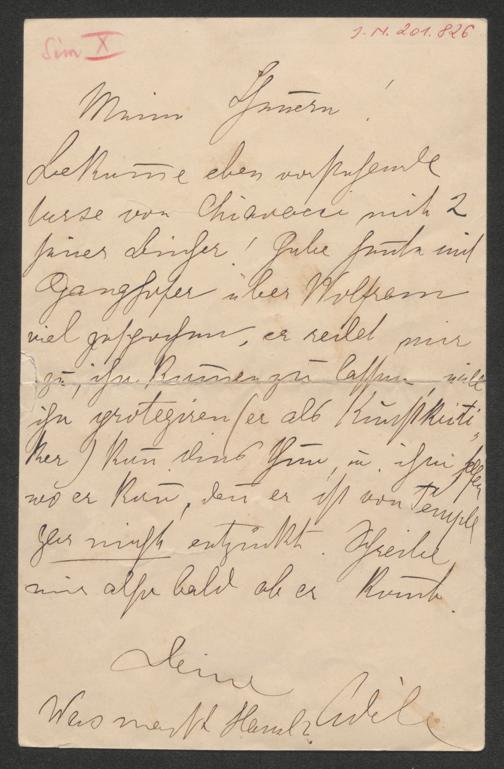 Sim X
I. N. 201.826
Mein Theurer!
Bekom̅e eben vorstehende
Verse von Chiavacci mit 2
seiner Lieder! Habe heute mit
Ganghofer über Wolfram
viel gesprochen, er redet mir
zu, ihn kom̅en zu lassen, will
ihn protegiren (er als Kunstkriti-
ker) kan̅ dies thun, u. ihm helfen
wo er kan̅, den̅ er ist von Temple
gar nicht entzückt. Schreibe
mir also bald ob er kom̅t.
Deine
Was macht Hansl? Adele